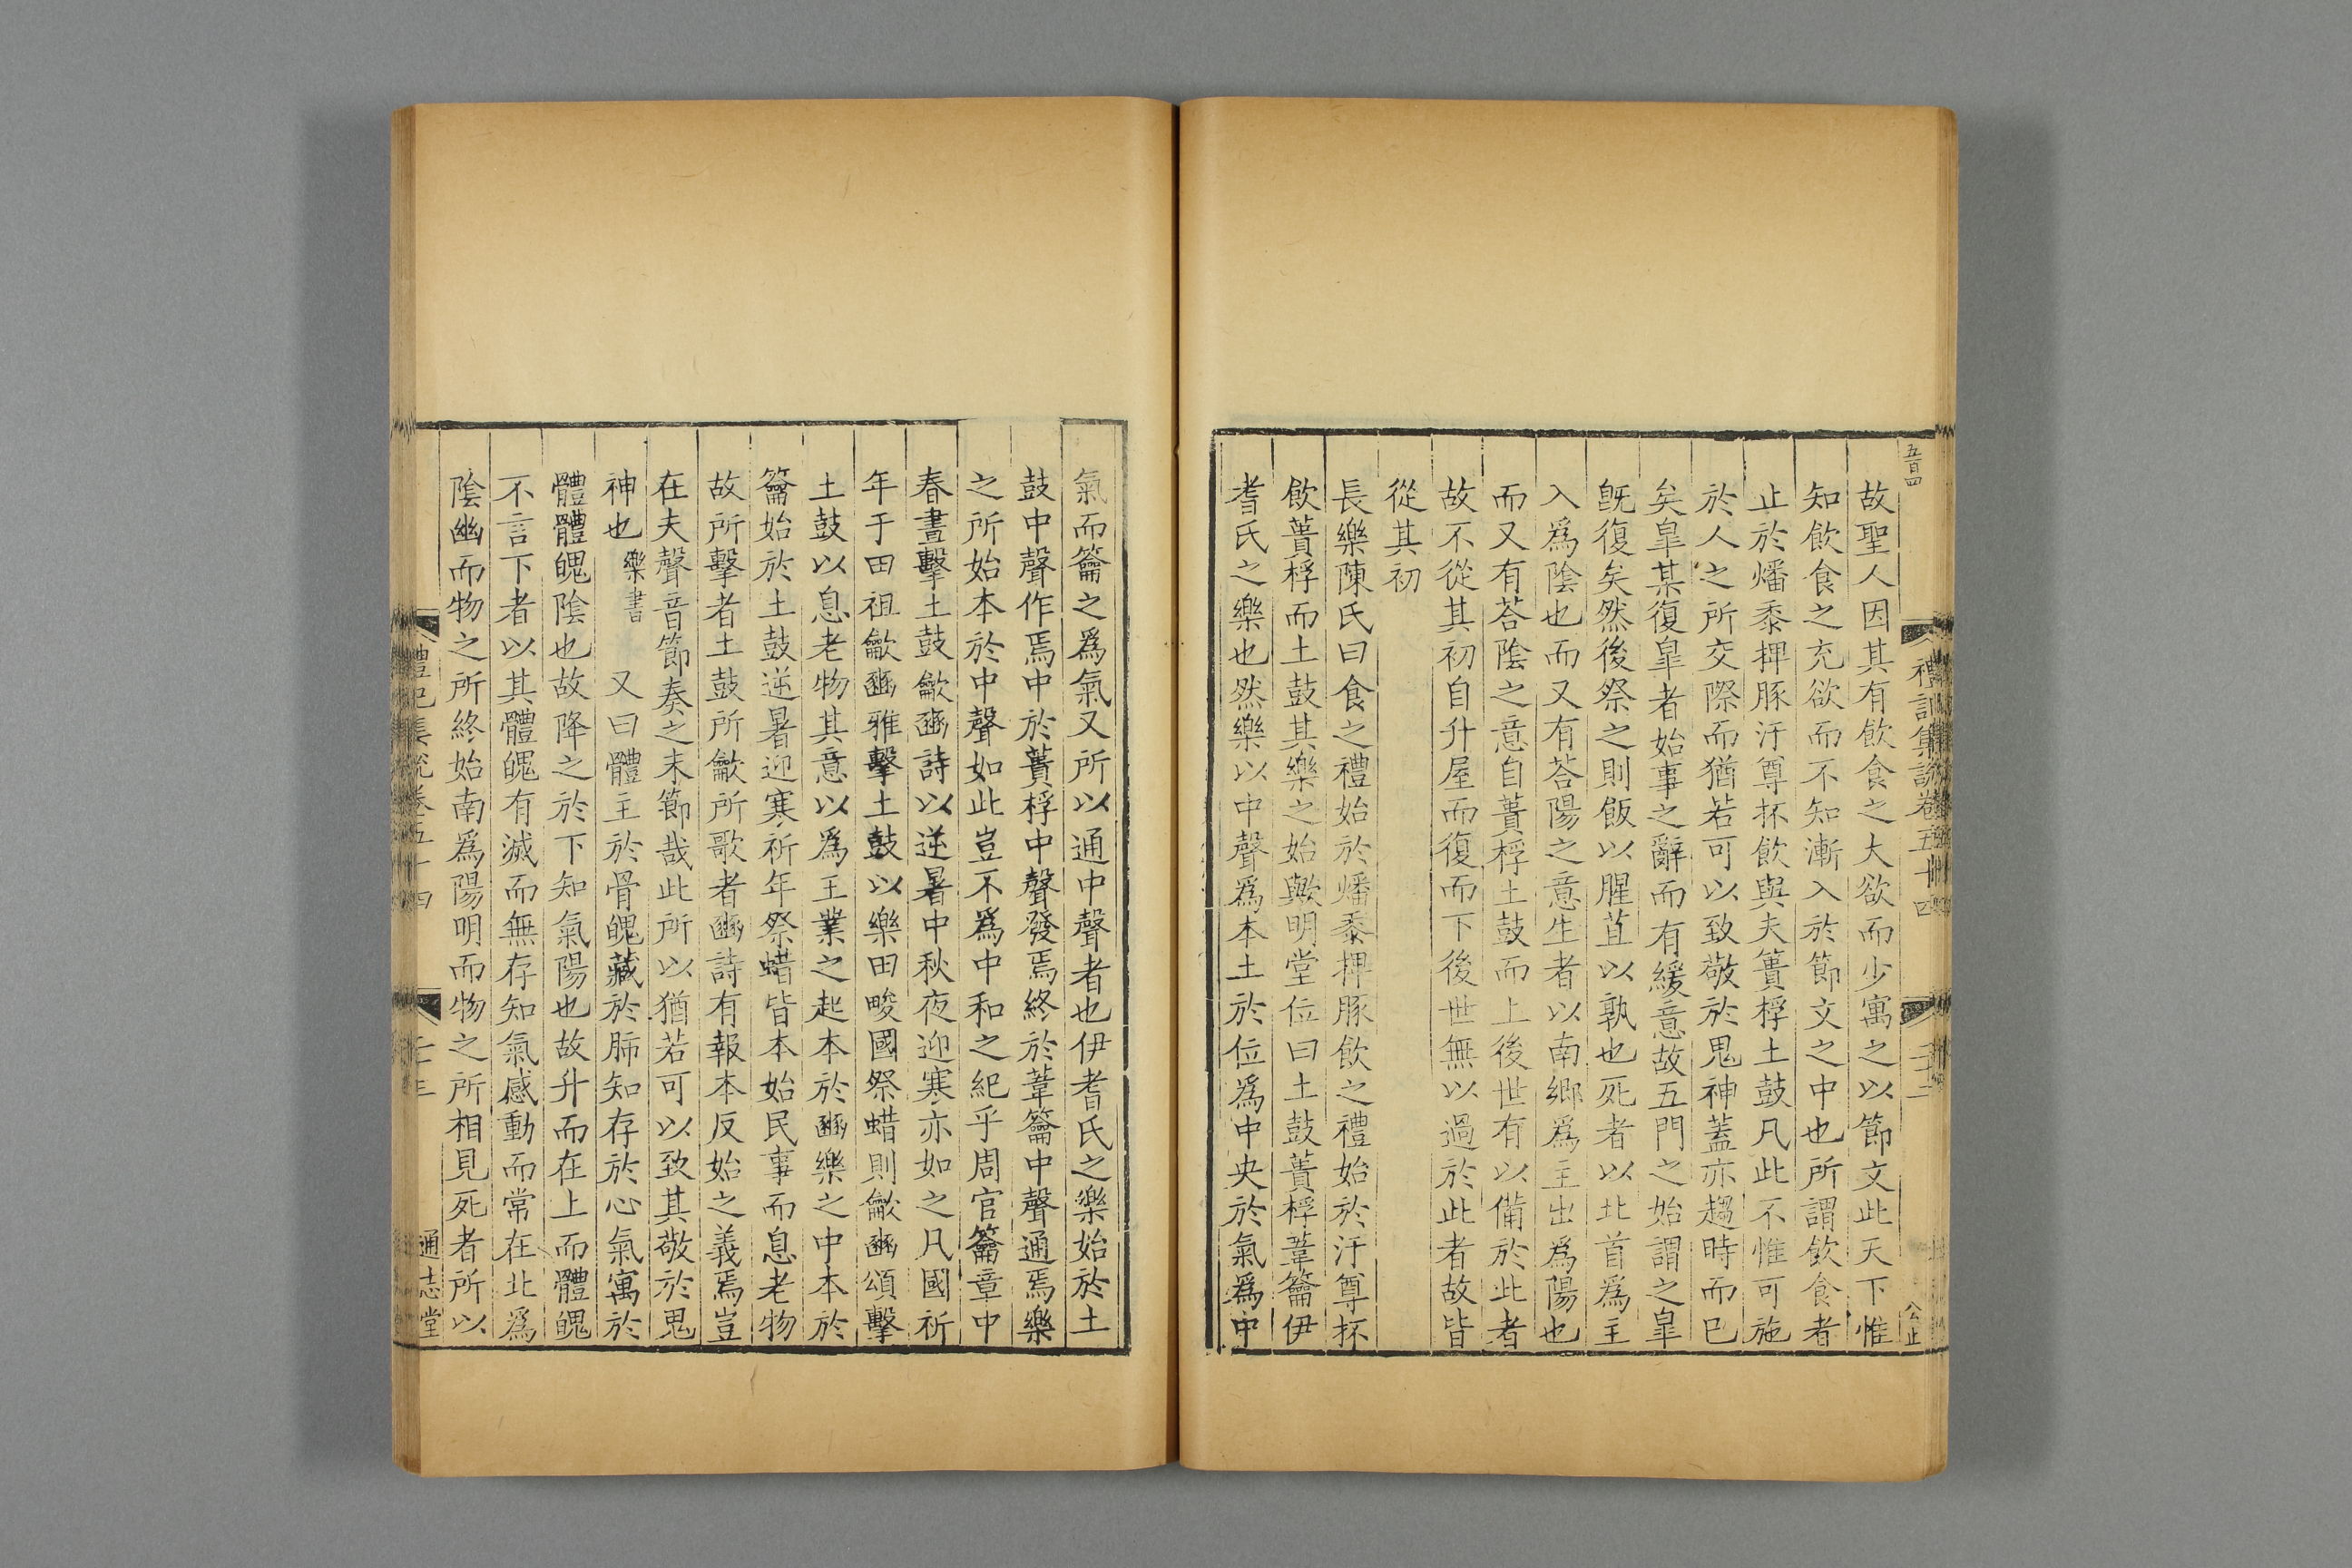 五百四
禮記集說卷五十四
公止
故聖人因其有飲食之大欲而少寓之以節文此天下惟
知飲食之充欲而不知漸入於節文之中也所謂飲食者
止於燔黍捭豚汙尊抔飲與夫蕢桴土鼓凡此不惟可施
於人之所交際而猶若可以致敬於鬼神蓋亦趨時而已
矣臯某復臯者始事之辭而有緩意故五門之始謂之臯
旣復矣然後祭之則飯以腥苴以孰也死者以北首爲主
入爲陰也而又有荅陽之意生者以南鄉爲主出爲陽也
而又有荅陰之意自蕢桴土鼓而上後世有以備於此者
故不從其初自升屋而復而下後世無以過於此者故皆
從其初
長樂陳氏曰食之禮始於燔黍捭豚飲之禮始於汙尊抔
飲蕢桴而土鼓其樂之始歟明堂位曰土鼓蕢桴葦籥伊
耆氏之樂也然樂以中聲爲本土於位爲中央於氣爲中
氣而籥之爲氣又所以通中聲者也伊耆氏之樂始於土
鼓中聲作焉中於蕢桴中聲發焉終於葦籥中聲通焉樂
之所始本於中聲如此豈不爲中和之紀乎周官籥章中
春晝擊土鼓龡豳詩以逆暑中秋夜迎寒亦如之凡國祈
年于田祖龡豳雅擊土鼓以樂田畯國祭蜡則龡豳頌擊
土鼓以息老物其意以爲王業之起本於豳樂之中本於
籥始於土鼓逆暑迎寒祈年祭蜡皆本始民事而息老物
故所擊者土鼓所龡所歌者豳詩有報本反始之義焉豈
在夫聲音節奏之末節哉此所以猶若可以致其敬於鬼
神也樂書 又曰體主於骨魄藏於肺知存於心氣寓於
體體魄陰也故降之於下知氣陽也故升而在上而體魄
不言下者以其體魄有滅而無存知氣感動而常在北爲
陰幽而物之所終始南爲陽明而物之所相見死者所以
禮記集說卷五十四
通志堂